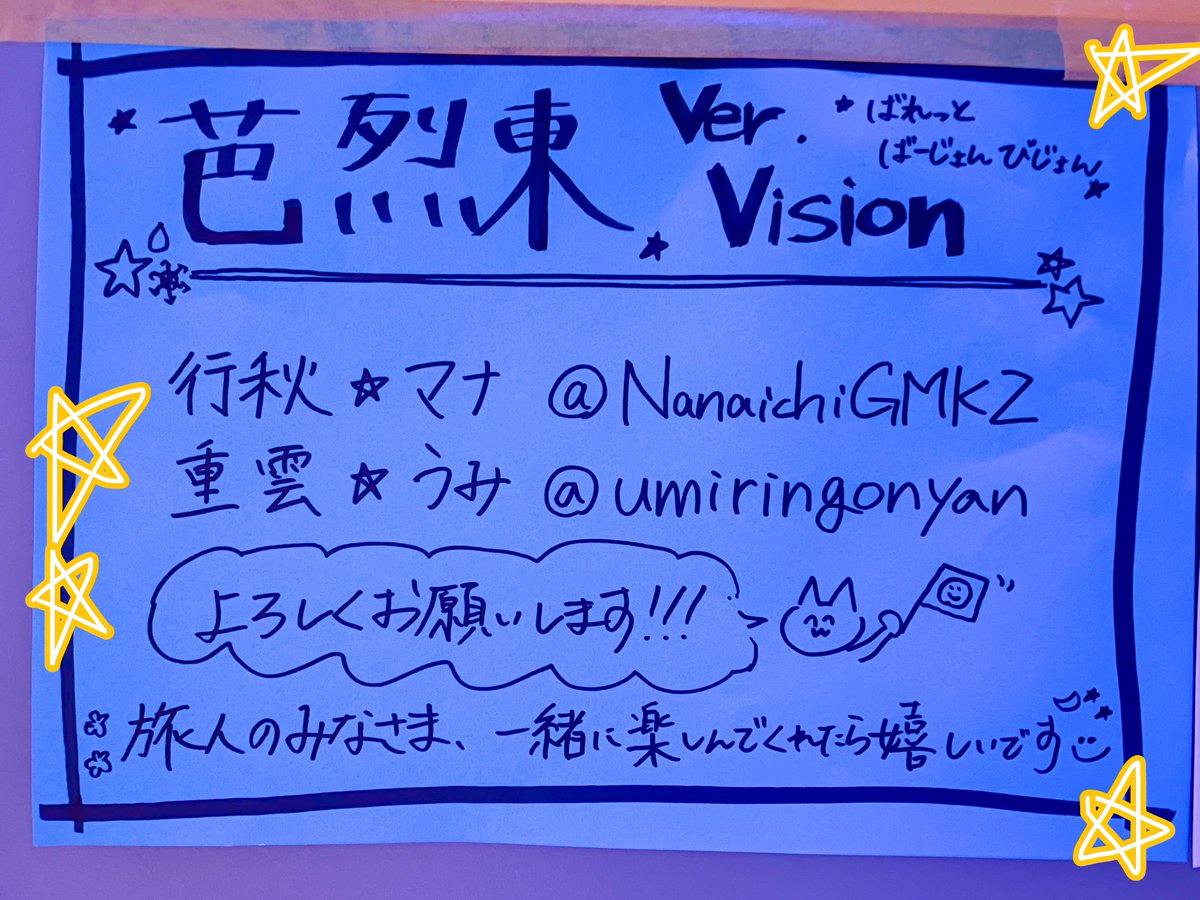 芭烈東 Ver. Vision
ばれっと
ばーじょん びじょん
行秋☆マナ @NanaichiGMKZ
重雲☆うみ @umiringonyan
よろしくお願いします!!!
旅人のみなさま、一緒に楽しんでくれたら嬉しいです